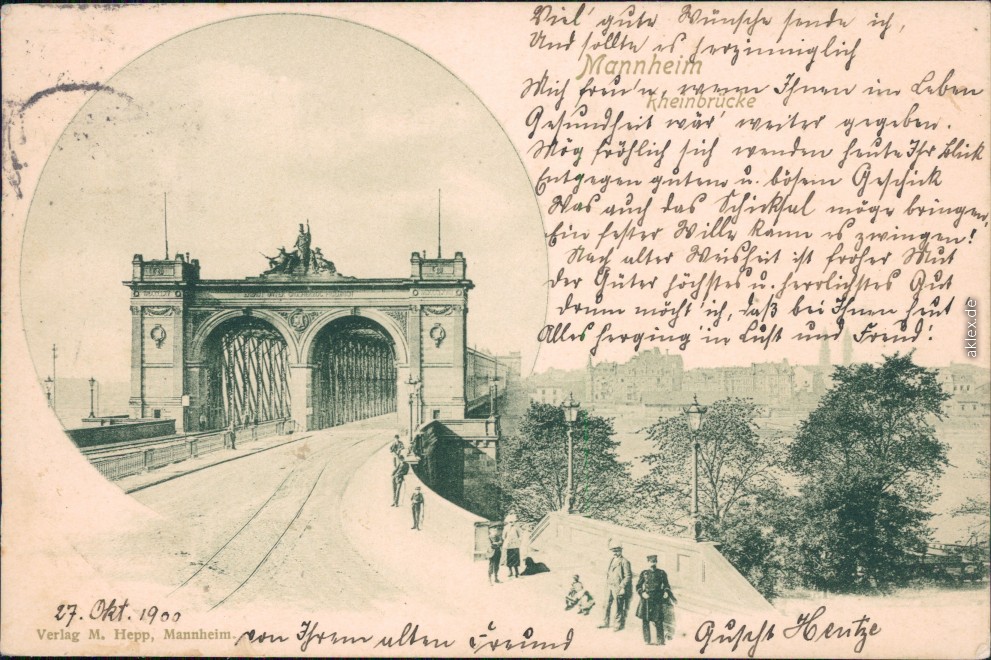 Viel' gute Wünsche sende ich,
Und sollte es herzinniglich
Mannheim
Mich freu'n, wenn Ihnen im Leben
Rheinbrücke
Gesundheit wär' weiter gegeben.
Mög fröhlich sich wenden heute Ihr Blick
Entgegen gutem u. bösem Geschick
Was auch das Schicksal möge bringen,
Ein fester Wille kann es zwingen!
Nach alter Weisheit ist froher Mut
der Güter höchstes u. herrlichstes Gut
drum möcht' ich, daß bei Ihnen heut
Alles herging in Lust und Freud!
aklex.de
27. Okt. 1900
Verlag M. Hepp, Mannheim.
von Ihrem alten Freund Hentze